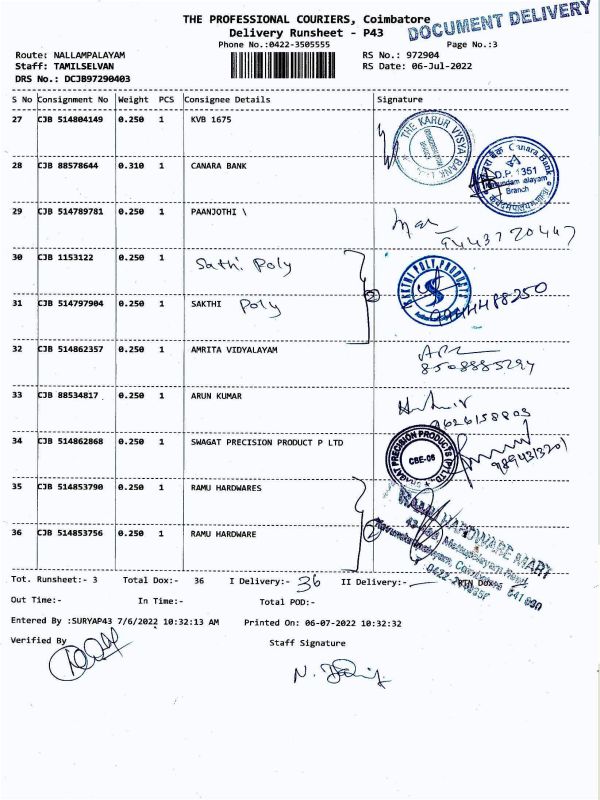 THE PROFESSIONAL COURIERS, Coimbatore
DOCUMENT DELIVERY
Delivery Runsheet - P43
Phone No.:0422-3505555
Page No.:3
Route: NALLAMPALAYAM
RS No.: 972904
Staff: TAMILSELVAN
RS Date: 06-Jul-2022
DRS No.: DCJB97290403
S No Consignment No Weight PCS Consignee Details Signature
27 CJB 514804149 0.250 1 KVB 1675
THE KARUR VYSYA BANK
28 CJB 88578644 0.310 1 CANARA BANK
Canara Bank
D.P. 1351
Branch
29 CJB 514789781 0.250 1 PAANJOTHI \
30 CJB 1153122 0.250 1 Sathi Poly
SAKTHI POLY PRODUCTS
31 CJB 514797904 0.250 1 SAKTHI Poly
2
9944488250
32 CJB 514862357 0.250 1 AMRITA VIDYALAYAM
8508885294
33 CJB 88534817 0.250 1 ARUN KUMAR
9626158809
34 CJB 514862868 0.250 1 SWAGAT PRECISION PRODUCT P LTD
SWAGAT PRECISION PRODUCTS (P) LTD.
CBE-06
35 CJB 514853790 0.250 1 RAMU HARDWARES
36 CJB 514853756 0.250 1 RAMU HARDWARE
2
RAMU HARDWARE MART
Coimbatore 641 030
Tot. Runsheet:- 3 Total Dox:- 36 I Delivery:- 36 II Delivery:- RTN Dox:-
Out Time:- In Time:- Total POD:-
Entered By :SURYAP43 7/6/2022 10:32:13 AM Printed On: 06-07-2022 10:32:32
Verified By Staff Signature